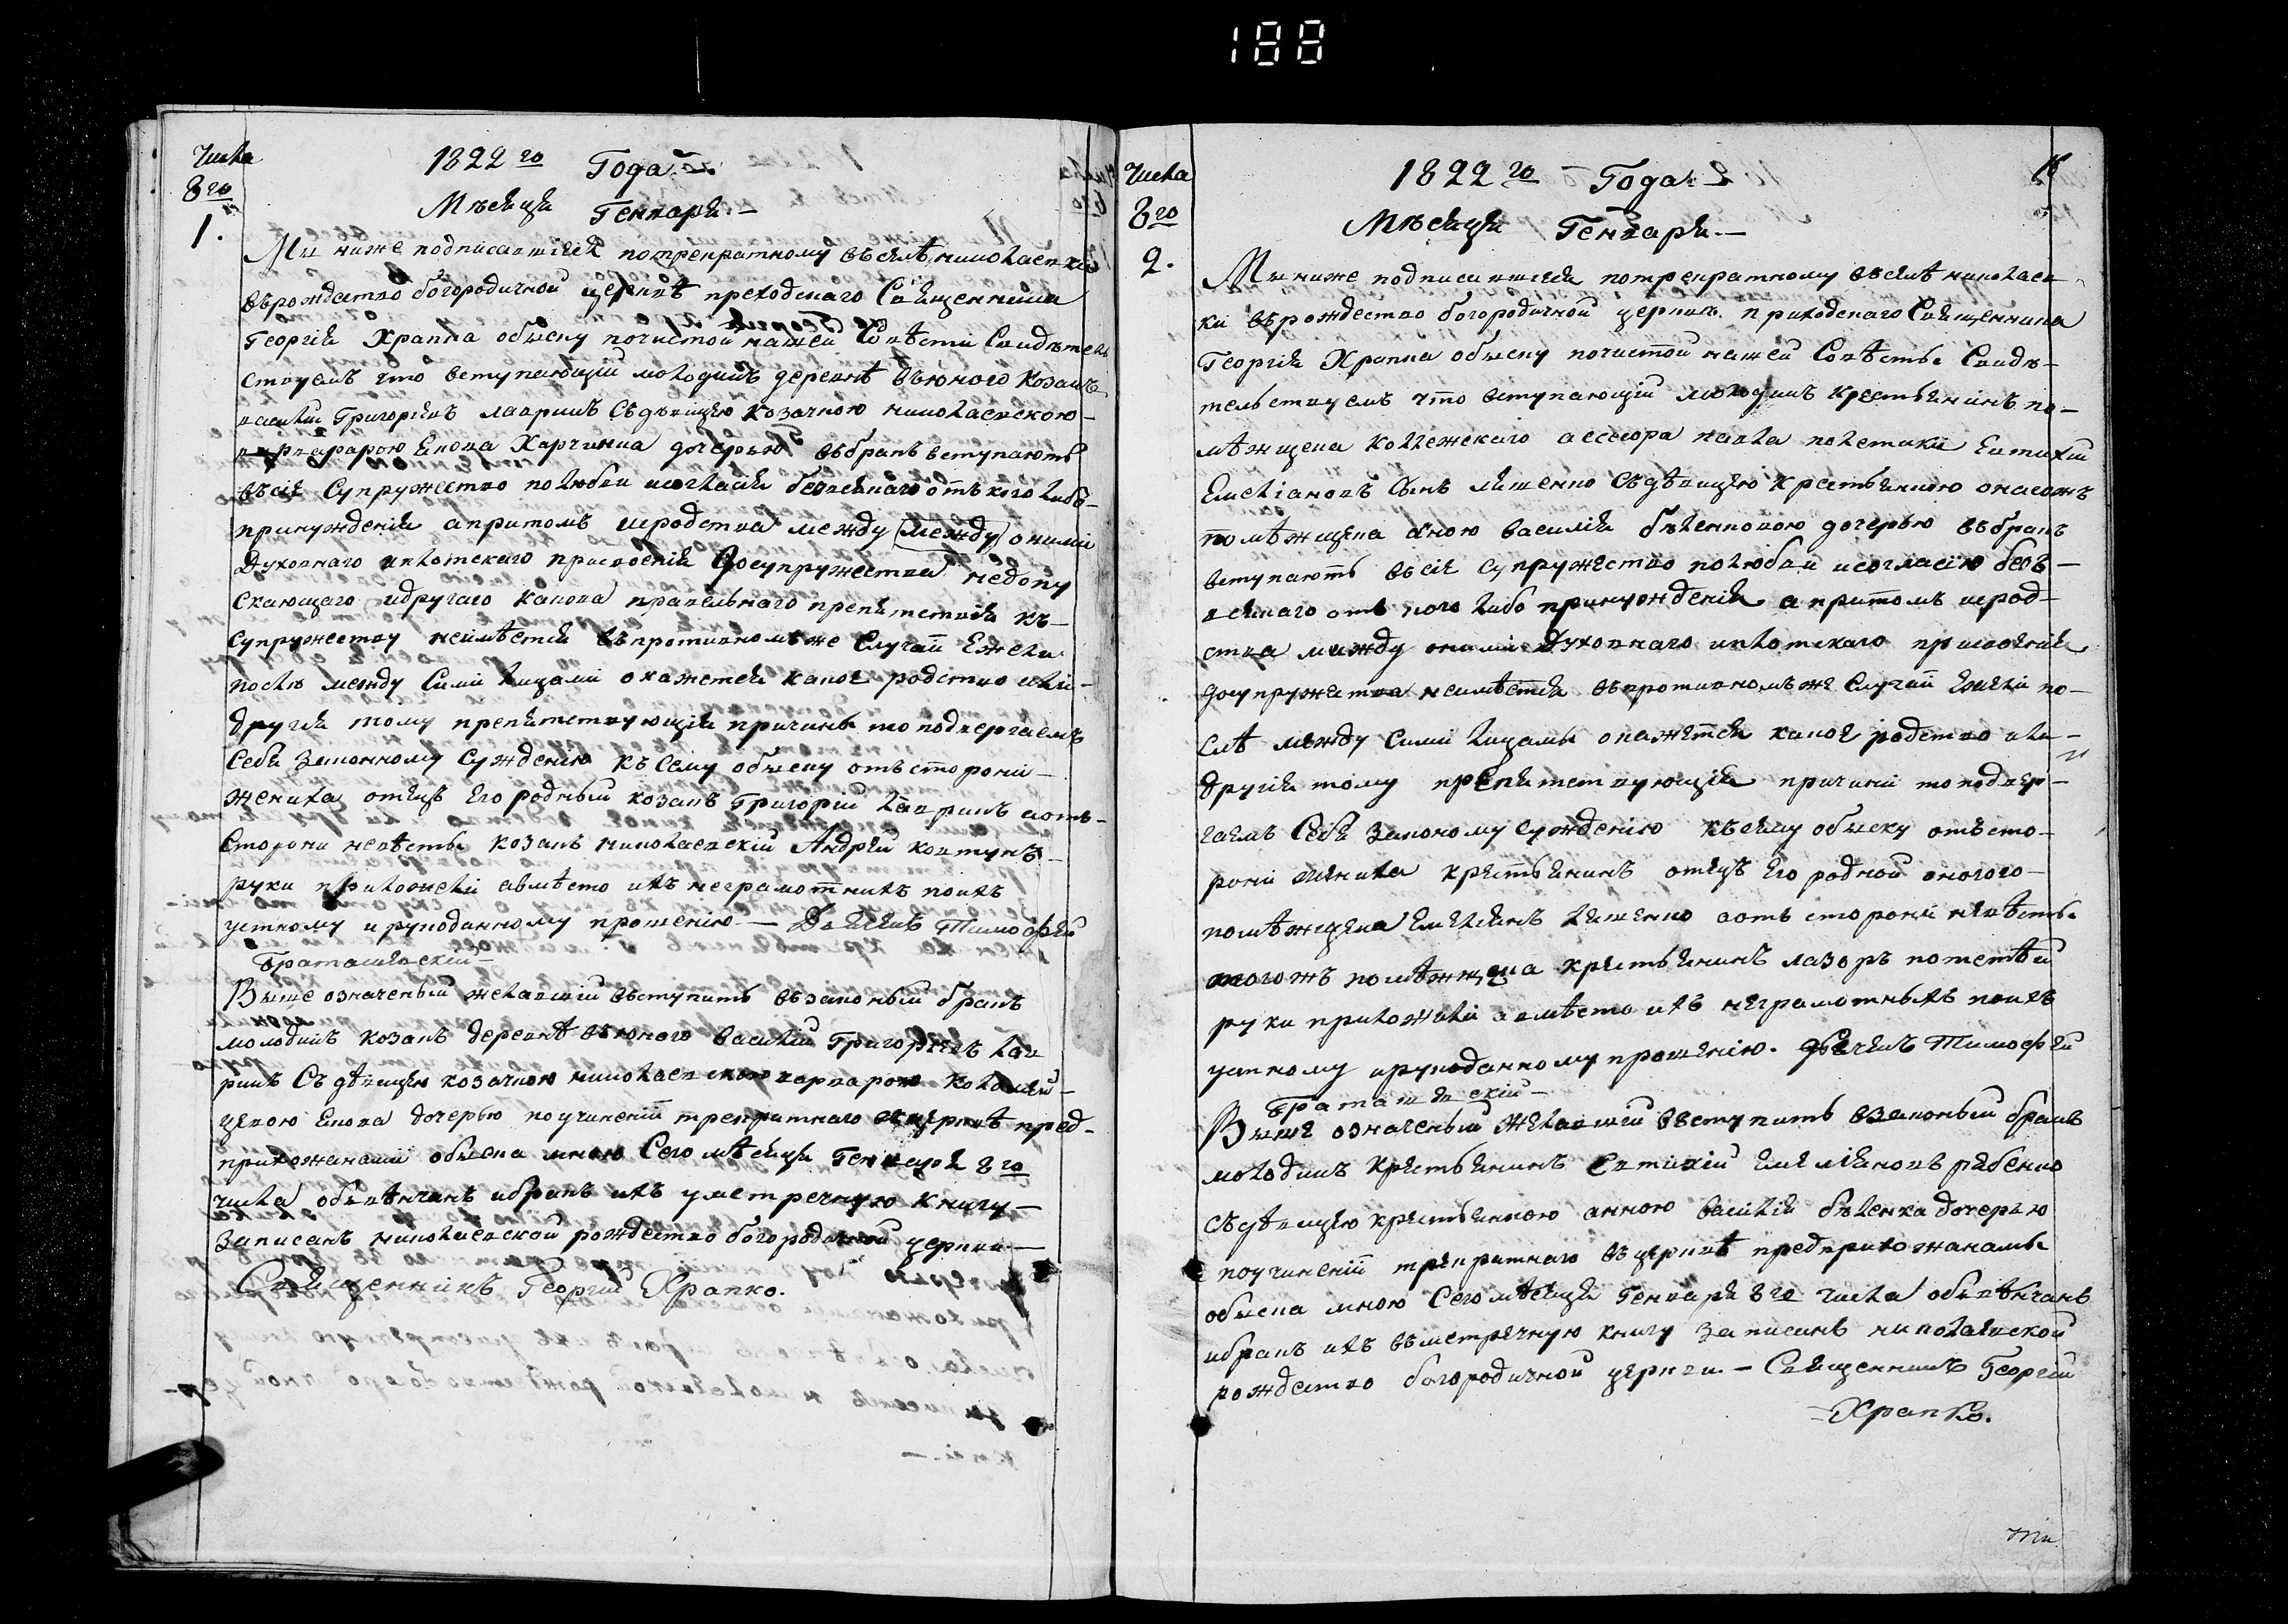 188
Числа
8го
1.
1822го Года.
Мѣсяця Генваря.—
Мы ниже подписавшіяся потрекратному въсѣлѣ николаевки
вьрождество богородичной церквѣ преходскаго Священника
Георгія Храпка обыску почистой нашей Совѣсти Свидѣтель
ствуемъ что вступающій молодикъ деревнѣ въюного козакъ
василій Григоріевъ лавринъ Съдѣвицею козачкою николаевскою
варварарою Енова Харченка дочерью въбракъ вступаютъ
въсіе Супружество полюбви исогласія безвсякаго отъ кого либо
принужденія апритомъ иродства между между оними
Духовнаго иплотскаго присвоенія досупружества недопу
скающаго идругаго какова правельнаго препятствія къ
супружеству неимѣется въпротивномъже Случаѣ Ежели
послѣ между Сими лицами окажется какое родство или
Другія тому препятствующія причины то подвергаемъ
Себя Законному Сужденію къ Сему обыску отъ стороні
жениха отецъ Его родный козакъ Григорій лавринъ аотъ
стороны невѣсты козакъ николаевскій Андрей ковтунъ
руки приложелі авмѣсто ихъ неграмотнихъ поихъ
устному и руподанному прошенію — Дьячекъ Тимофей
Браташевскій
Више означеный желавшій вьступить възаконый бракъ
молодикъ козакъ деревнѣ въюного василій Григоріевъ лав
ринъ Съ дѣвицею козачкою николаевскою варварою коломей
цевою Енова дочерью поучиненіи трекратнаго въцерквѣ пред
прихожанами обыска мною Сего мѣсяця Генваря 8го
числа обывѣнчанъ ибракъ ихъ уметречную книгу
Записанъ николаевской рождество богородичной церкви
Священникъ Георгій Храпко.
Числа
8го
2.
1822го Года
Мѣсяця Генваря.—
Мы ниже подписавшіяся потрекратному въсѣлѣ николаев
ки вьрождество богородичной церкви приходскаго Священника
Георгія Храпка обыску почистой нашей Совѣсты Свидѣ
тельствуемъ что вступающій молодикъ крестьянинъ по
мѣжщека коллежскаго ассесора павла полетики Евтихій
Емеліановъ Сынъ Съдѣвицею крестьянкою онагожъ
помѣжщека аною василія бѣленковою дочерью въбракъ
вступаютъ въсіе супружество полюбви исогласію безъ
всякаго отъ кого либо принужденія апритомъ ирод
ства между оними Духовнаго иплотскаго присвоенія
досупружества неимѣется въпротивномъже Случаѣ Ежели по
слѣ между Сими лицамы окажется какое родство или
другія тому препятствующія причині топодвер
гаемъ Себя законому сужденію къ сему обыску отъ сто
роні жениха крестьянинъ отецъ Его родной оногого
помѣжщека Емелянъ аотъ стороны невѣсты
тогожъ помѣжщека крестьянинъ лазоръ
руки приложили авмѣсто ихъ неграмотныхъ поихъ
устному ируподанному прошенію. Дьячекъ Тимофей
Браташевскій
Више означеный желавшій въступить взаконый бракъ
молодикъ крестьянинъ Евтихій Емеліановъ рябенко
съдѣвицею крестьянкою анною василія бѣленка дочерью
поучиненіи трекратнаго въцерквѣ предприхожанамы
обыска мною Сегомѣсяця Генваря 8го числа обывѣнчанъ
ибракъ ихъ въметречную книгу записанъ николаевской
рождество богородичной церкви. — Священникъ Георгій
Храпко.